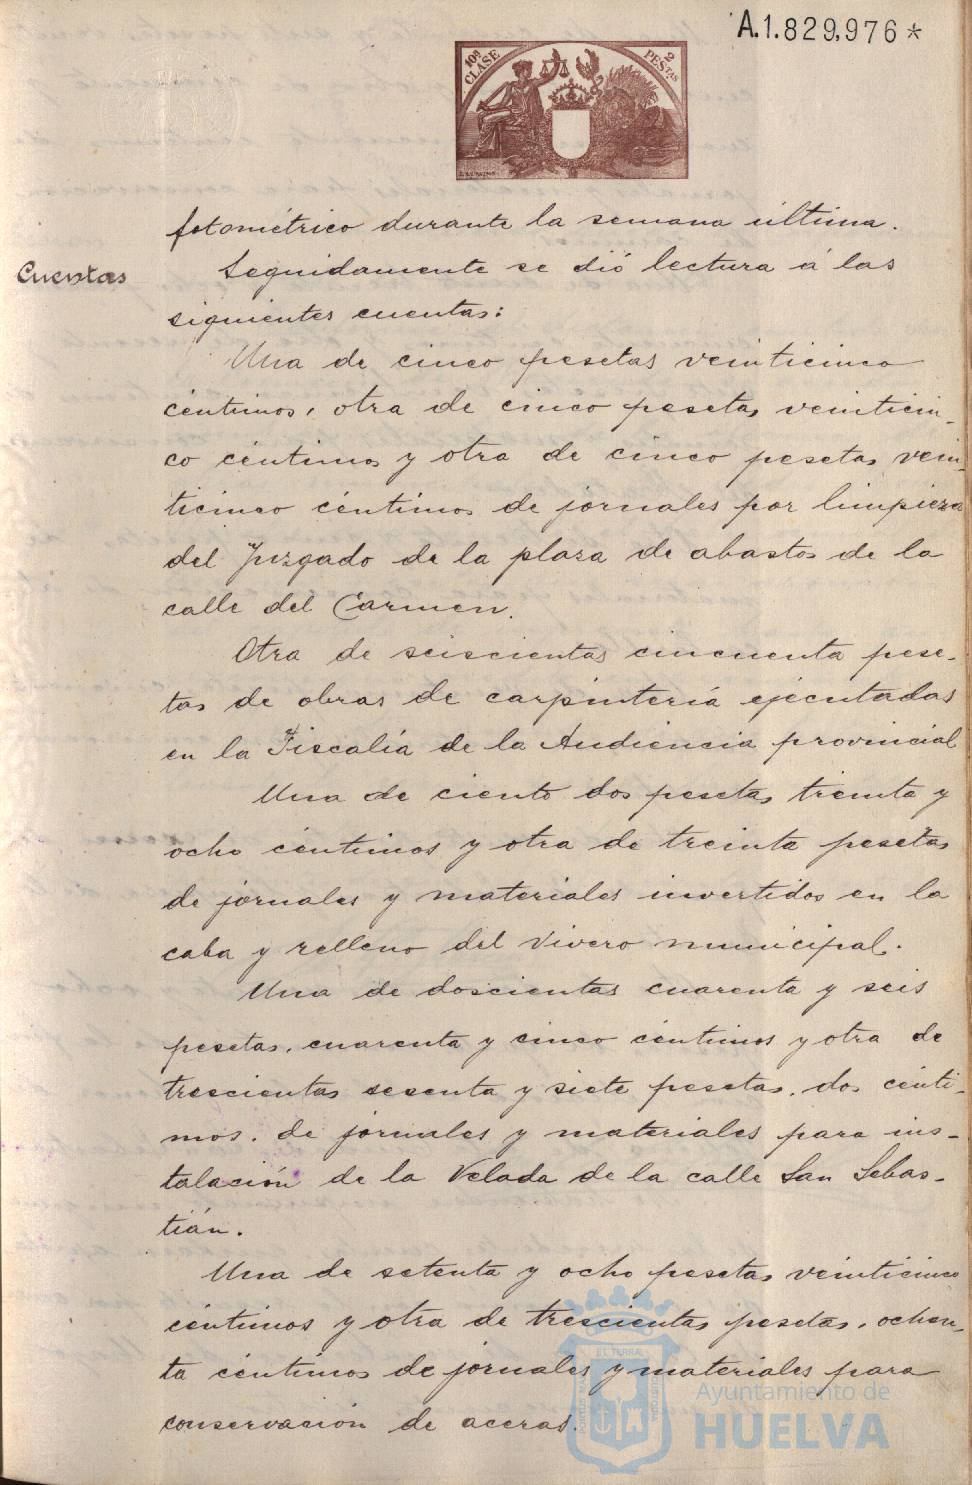 A.1.829,976*
10ª CLASE
2 PESTAS
fotométrico durante la semana última.
Cuentas
Seguidamente se dió lectura á las
siguientes cuentas:
Una de cinco pesetas veinticinco
céntimos, otra de cinco pesetas veinticin-
co céntimos y otra de cinco pesetas vein-
ticinco céntimos de jornales por limpieza
del Juzgado de la plaza de abastos de la
calle del Carmen.
Otra de seiscientas cincuenta pese-
tas de obras de carpintería ejecutadas
en la Fiscalía de la Audiencia provincial
Una de ciento dos pesetas treinta y
ocho céntimos y otra de treinta pesetas
de jornales y materiales invertidos en la
caba y relleno del vivero municipal.
Una de doscientas cuarenta y seis
pesetas, cuarenta y cinco céntimos y otra de
trescientas sesenta y siete pesetas, dos cénti-
mos, de jornales y materiales para ins-
talación de la Velada de la calle San Sebas-
tián.
Una de setenta y ocho pesetas veinticinco
céntimos y otra de trescientas pesetas, ochen-
ta céntimos de jornales y materiales para
conservación de aceras.
Ayuntamiento de
HUELVA